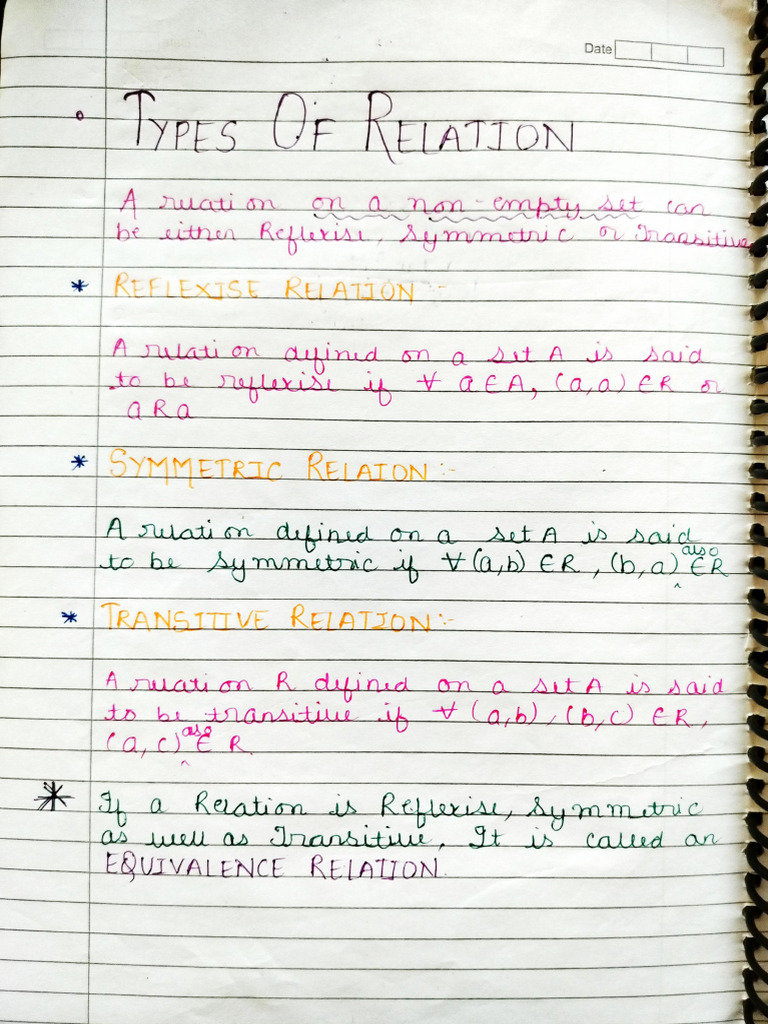 Date
• TYPES OF RELATION
A relation on a non-empty set can
be either Reflexise, Symmetric or Transitive
* REFLEXISE RELATION :-
A relation defined on a set A is said
to be reflexise if ∀ a∈A, (a,a) ∈R or
aRa
* SYMMETRIC RELAION :-
A relation defined on a set A is said
to be symmetric if ∀(a,b) ∈R, (b,a) also ∈R
* TRANSITIVE RELATION :-
A relation R defined on a set A is said
to be transitive if ∀ (a,b), (b,c) ∈R,
(a,c) also ∈ R.
* If a Relation is Reflexise, Symmetric
as well as Transitive, It is called an
EQUIVALENCE RELATION.